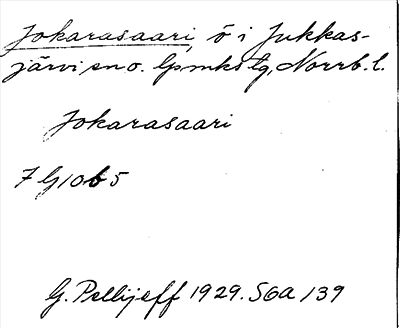 Jokarasaari, ö i Jukkas-
järvi sn o. lpmks tg, Norrb. l.
Jokarasaari
7 G 10 b 5
G. Pellijeff 1929. S6a 139